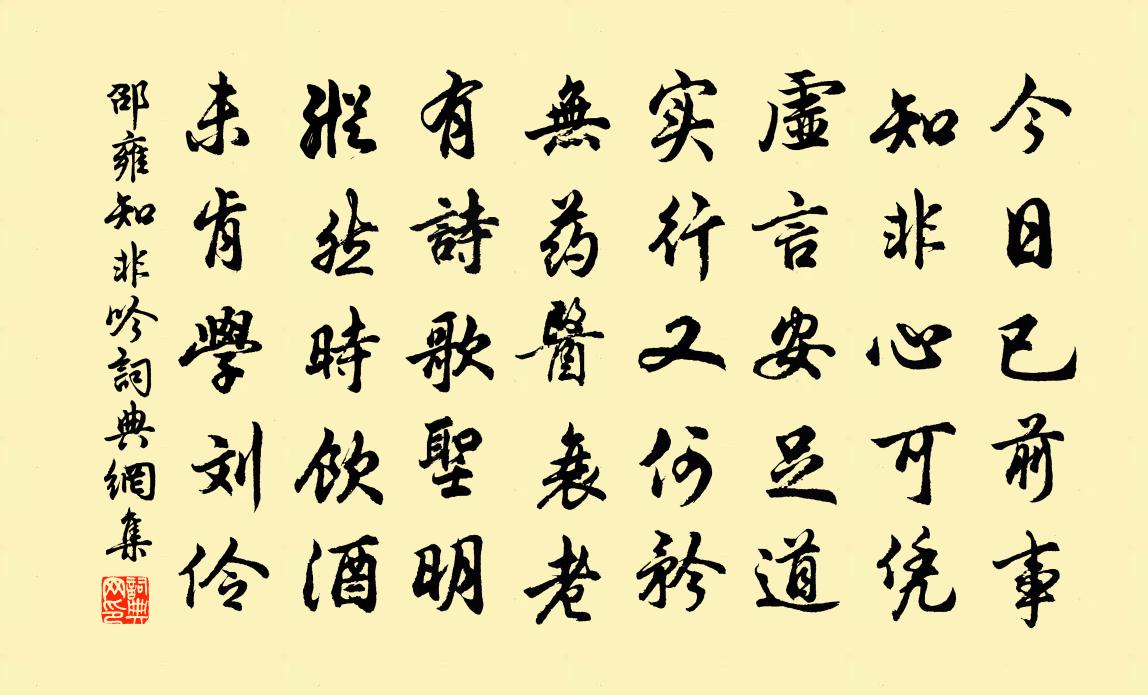 今日已前事
知非心可凭
虛言安足道
实行又何矜
無药醫衰老
有詩歌聖明
縱然時飲酒
未肯學刘伶
邵雍知非吟詞典網集
詞典网印